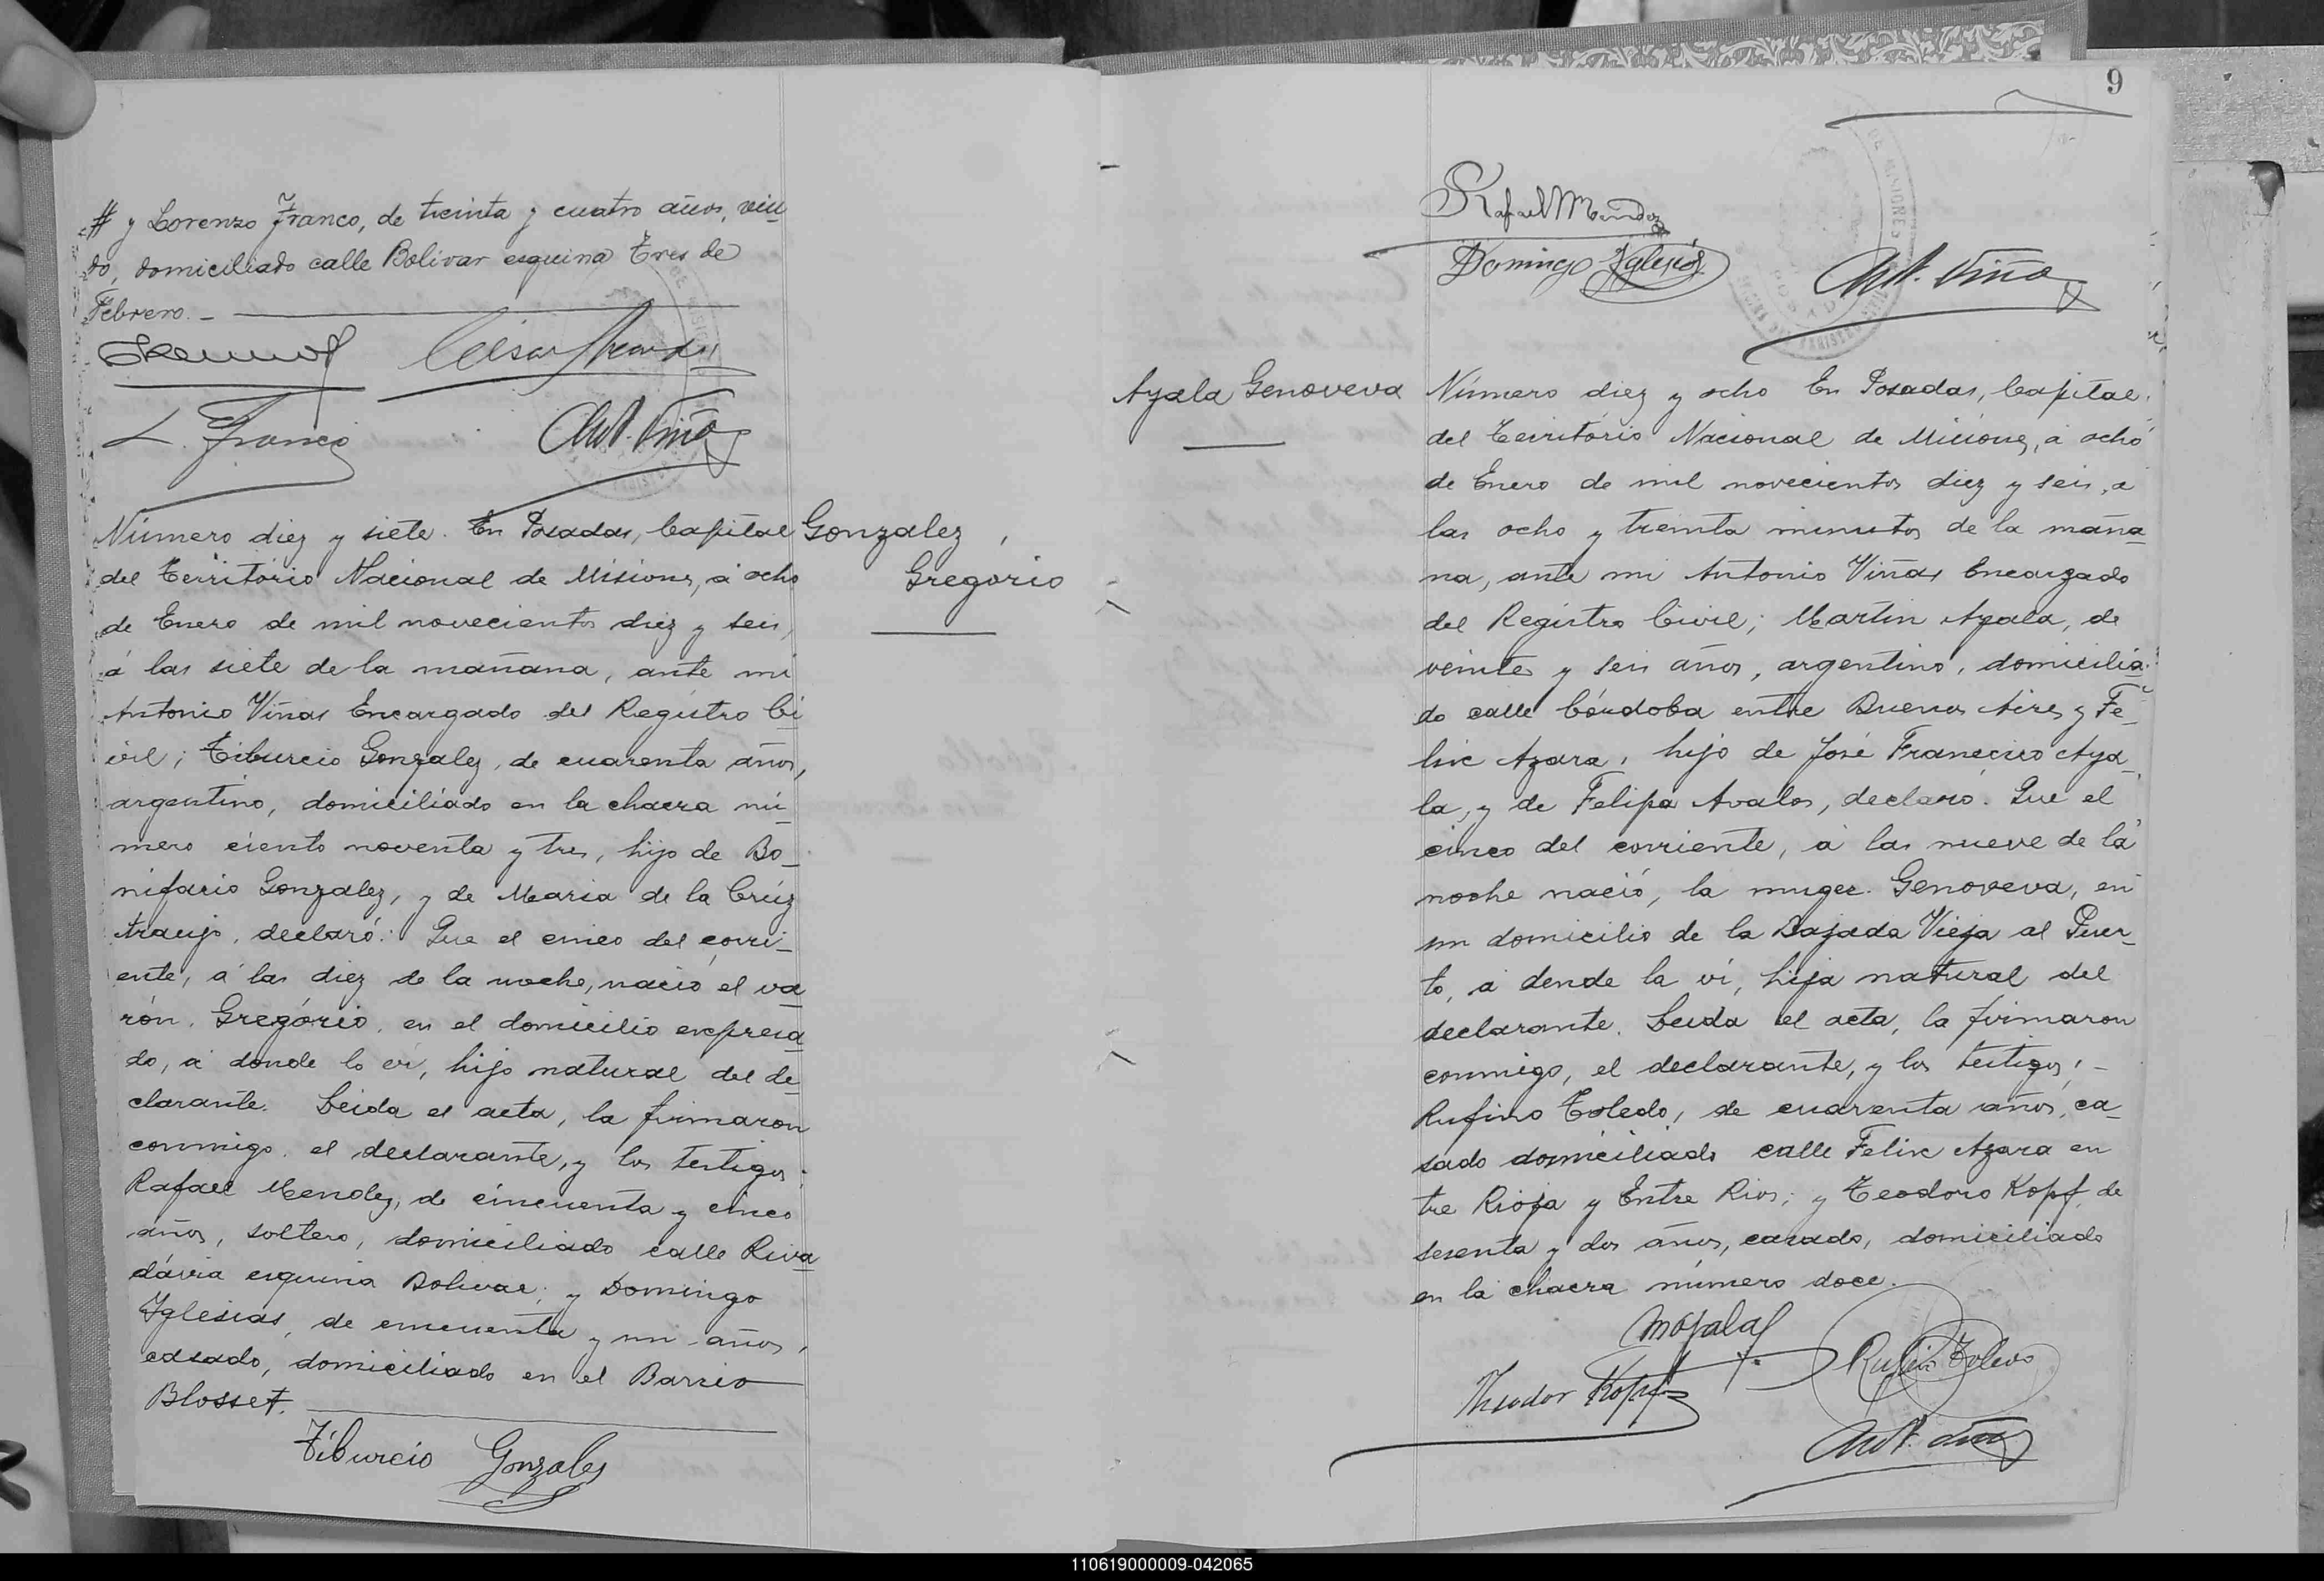 # y Lorenzo Franco, de treinta y cuatro años, viu
do, domiciliado calle Bolivar esquina Tres de
Febrero. -
L. Franco
Ant. Viñas
Número diez y siete. En Posadas, Capital
del Território Nacional de Misiones, á ocho
de Enero de mil novecientos diez y seis,
á las siete de la mañana, ante mi
Antonio Viñas Encargado del Registro Ci
vil; Tiburcio Gonzalez, de cuarenta años,
argentino, domiciliado en la chacra nú
mero ciento noventa y tres, hijo de Bo_
nifacio Gonzalez, y de Maria de la Crúz
Araujo, declaró: Que el cinco del corri_
ente, á las diez de la noche, nació el va
rón, Gregório, en el domicilio expresa
do, á donde lo ví, hijo natural del de
clarante. Leida el acta, la firmaron
conmigo, el declarante, y los testigos:
Rafael Mendez, de cincuenta y cinco
años, soltero, domiciliado calle Riva
dávia esquina Bolivar; y Domingo
Iglesias, de cincuenta y un años,
casado, domiciliado en el Barrio
Blosset.
Tiburcio Gonzales
Gonzalez
Gregorio
9
Rafael Mendez
Domingo Yglesias
Ant. Viñas
Ayala Genoveva
Número diez y ocho En Posadas, Capital
del Território Nacional de Misiones, á ocho
de Enero de mil novecientos diez y seis, á
las ocho y treinta minutos de la maña
na, ante mi Antonio Viñas Encargado
del Registro Civil; Martin Ayala, de
veinte y seis años, argentino, domicilia
do calle Córdoba entre Buenos Aires y Fe_
lix Azara, hijo de José Francisco Aya_
la, y de Felipa Avalos, declaró: Que el
cinco del corriente, á las nueve de la
noche nació, la muger Genoveva, en
un domicilio de la Bajada Vieja al Puer_
to, á dende la ví, hija natural del
declarante. Leida el acta, la firmaron
conmigo, el declarante, y los testigos: -
Rufino Toledo, de cuarenta años, ca_
sado domiciliado calle Felix Azara en
tre Rioja y Entre Rios; y Teodoro Kopf, de
sesenta y dos años, casado, domiciliado
en la chacra número doce.
MAyala
Rufino Toledo
Theodor Kopf
Ant. Viñas
110619000009-042065